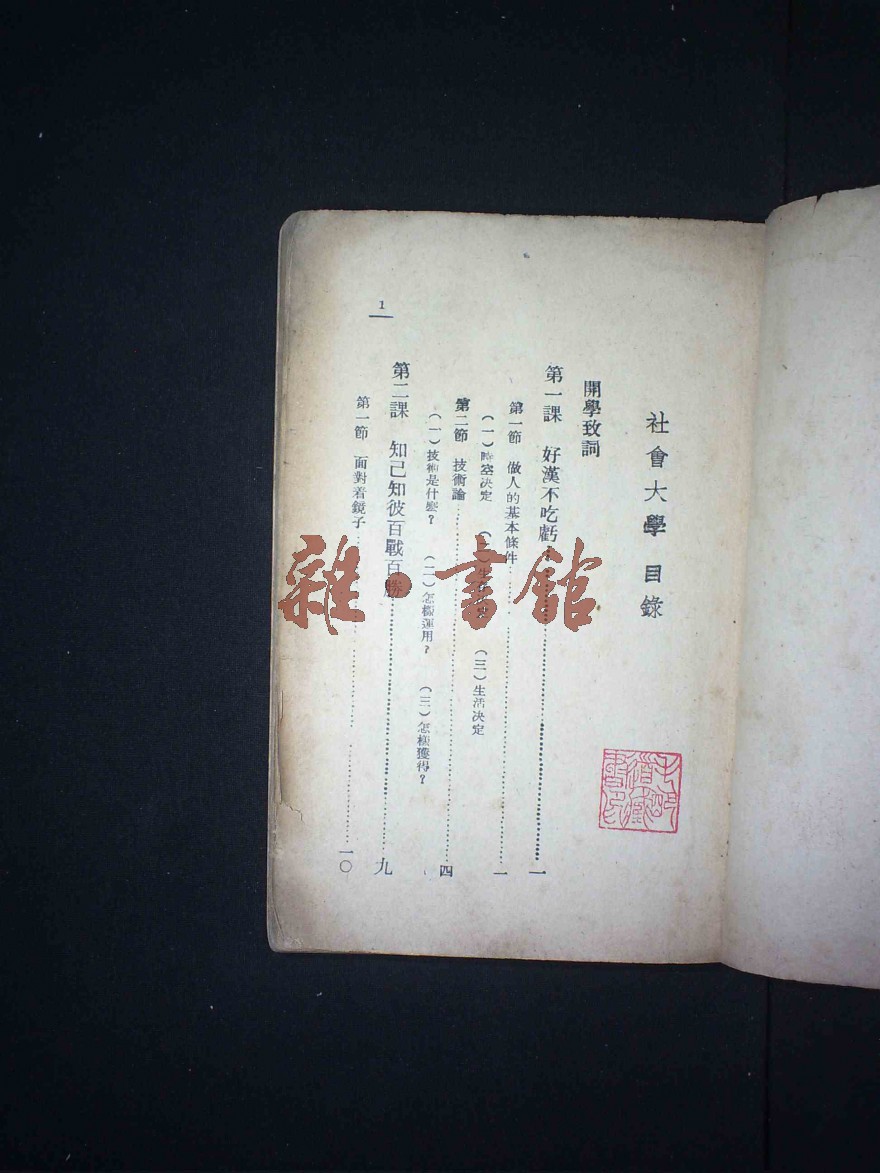 社會大學 目錄
開學致詞
第一課 好漢不吃虧……一
第一節 做人的基本條件……一
(一)時空決定 (二)生 (三)生活決定
第二節 技術論……四
(一)技術是什麼? (二)怎樣運用? (三)怎樣獲得?
第二課 知己知彼百戰百勝……九
第一節 面對着鏡子……一〇
1
雜·書館